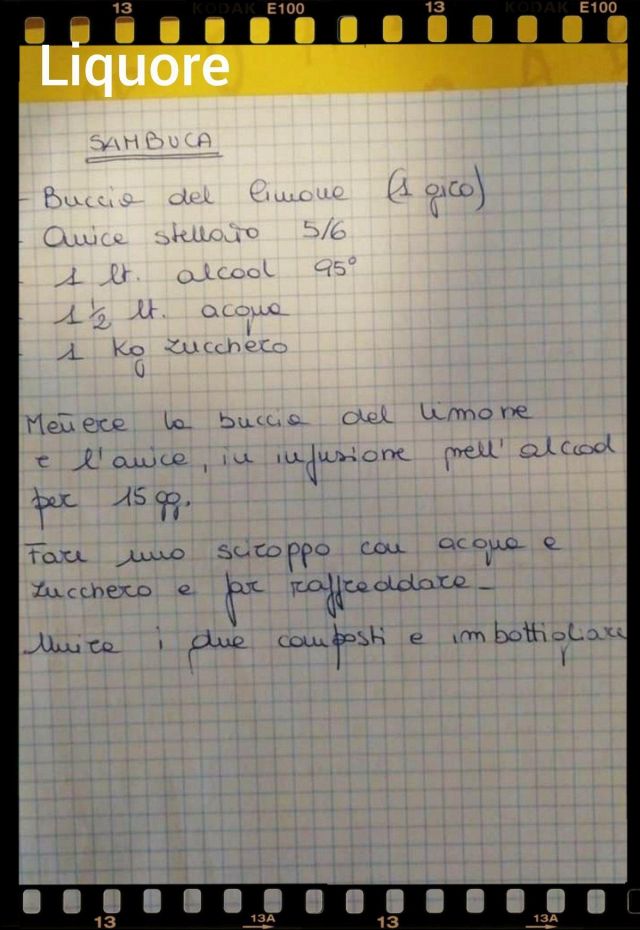 13 KODAK E100 13 KODAK E100
Liquore
SAMBUCA
- Buccia del limone (1 giro)
- Anice stellato 5/6
- 1 lt. alcool 95°
- 1 ½ lt. acqua
- 1 Kg zucchero
Mettere la buccia del limone
e l'anice, in infusione nell'alcool
per 15 gg.
Fare uno sciroppo con acqua e
zucchero e far raffreddare -
Unire i due composti e imbottigliare
13 13A 13 13A